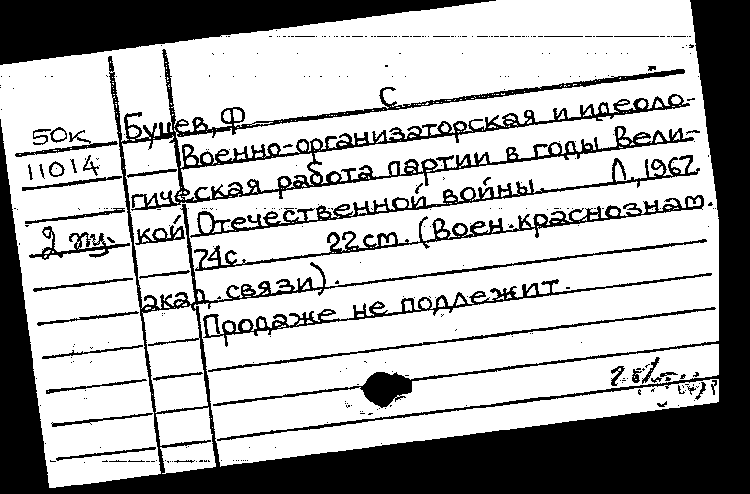 50к Буцев, Ф С
11014 Военно-организаторская и идеоло-
гическая работа партии в годы Вели-
2 кой Отечественной войны. Л., 1967.
74с. 22см. (Воен. краснознам.
акад. связи).
Продаже не подлежит.